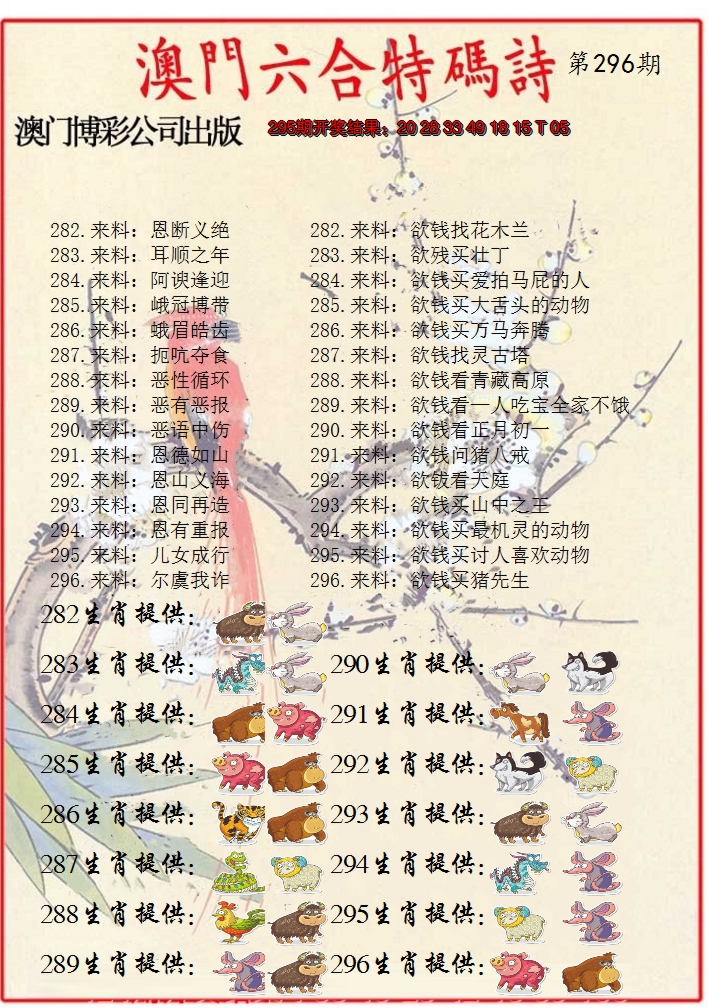 澳門六合特碼詩 第296期
澳门博彩公司出版 295期开奖结果：20 28 33 49 18 15 T 05
282.来料：恩断义绝 282.来料：欲钱找花木兰
283.来料：耳顺之年 283.来料：欲残买壮丁
284.来料：阿谀逢迎 284.来料：欲钱买爱拍马屁的人
285.来料：峨冠博带 285.来料：欲钱买大舌头的动物
286.来料：蛾眉皓齿 286.来料：欲钱买万马奔腾
287.来料：扼吭夺食 287.来料：欲钱找灵古塔
288.来料：恶性循环 288.来料：欲钱看青藏高原
289.来料：恶有恶报 289.来料：欲钱看一人吃宝全家不饿
290.来料：恶语中伤 290.来料：欲钱看正月初一
291.来料：恩德如山 291.来料：欲钱问猪八戒
292.来料：恩山义海 292.来料：欲钱看天庭
293.来料：恩同再造 293.来料：欲钱买山中之王
294.来料：恩有重报 294.来料：欲钱买最机灵的动物
295.来料：儿女成行 295.来料：欲钱买讨人喜欢动物
296.来料：尔虞我诈 296.来料：欲钱买猪先生
282生肖提供：
283生肖提供： 290生肖提供：
284生肖提供： 291生肖提供：
285生肖提供： 292生肖提供：
286生肖提供： 293生肖提供：
287生肖提供： 294生肖提供：
288生肖提供： 295生肖提供：
289生肖提供： 296生肖提供：